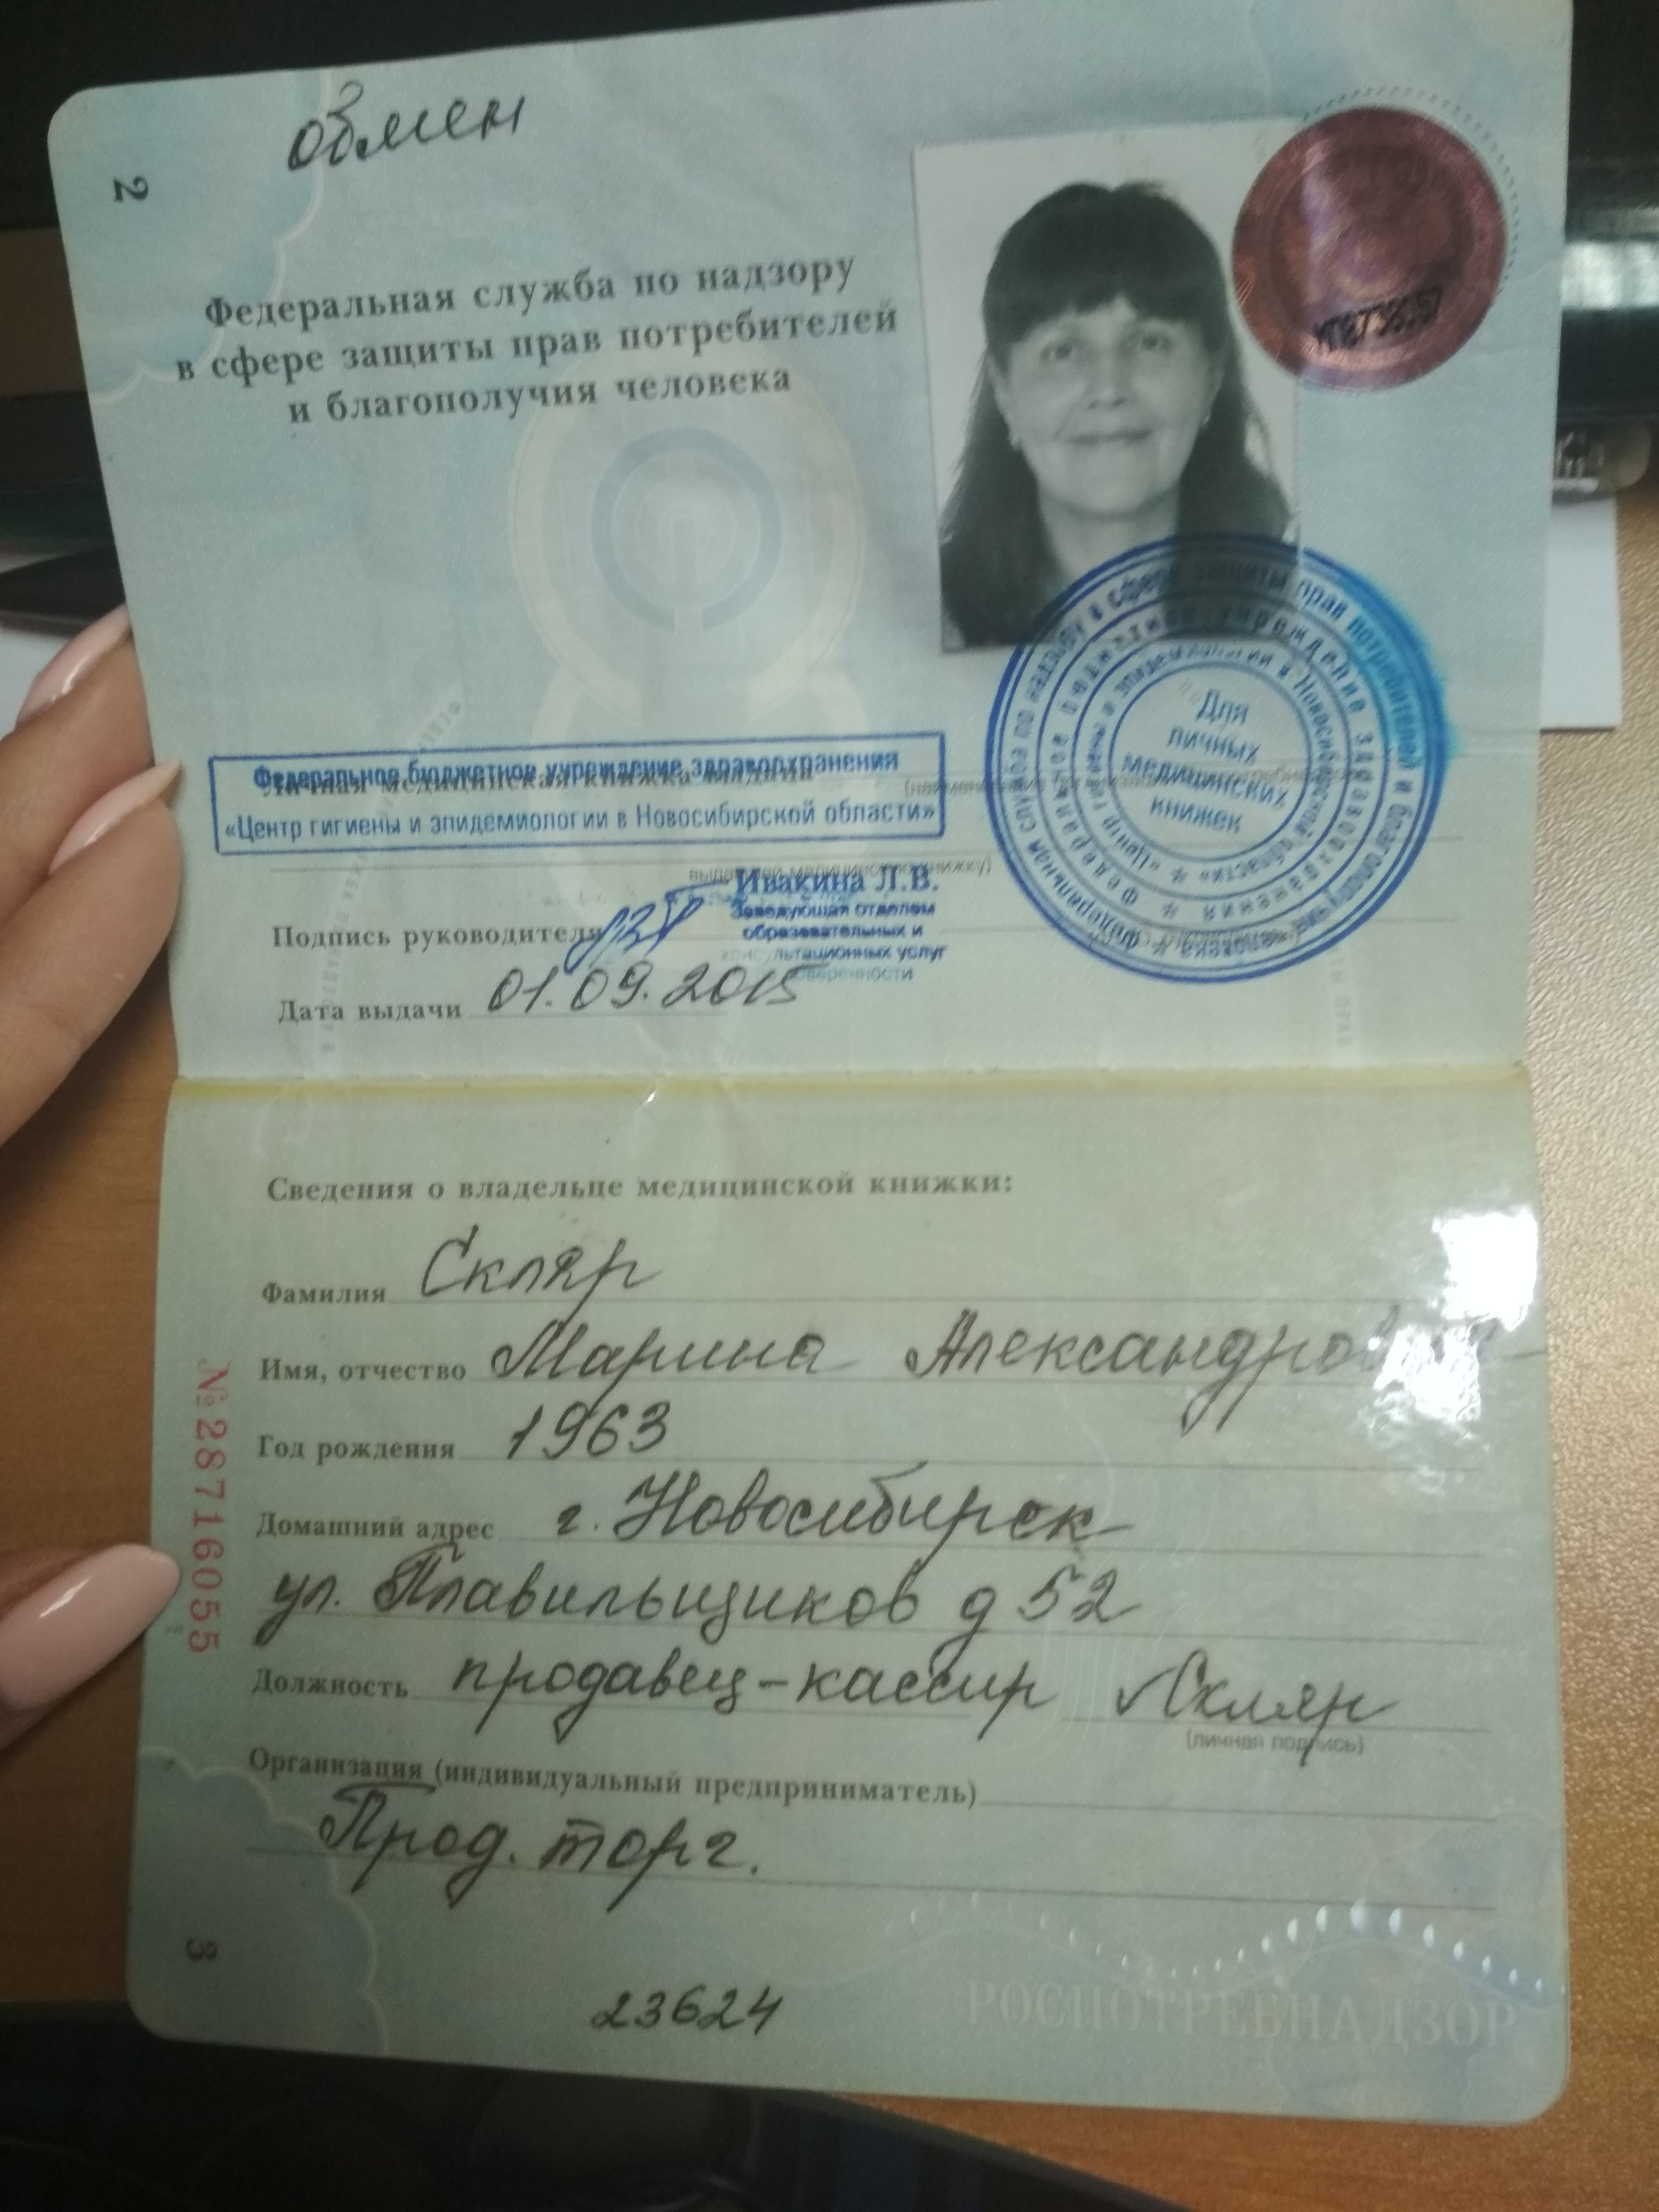 обмен
2
Федеральная служба по надзору
в сфере защиты прав потребителей
и благополучия человека
Федеральное бюджетное учреждение здравоохранения
Личная медицинская книжка выдана
«Центр гигиены и эпидемиологии в Новосибирской области»
выдавшей медицинскую книжку)
Для
личных
медицинских
книжек
Федеральная служба по надзору в сфере защиты прав потребителей и благополучия человека
Федеральное бюджетное учреждение здравоохранения
«Центр гигиены и эпидемиологии в Новосибирской области»
Ивакина Л.В.
Заведующая отделом
образовательных и
консультационных услуг
Подпись руководителя
Дата выдачи 01.09.2015
Сведения о владельце медицинской книжки:
Фамилия Скляр
Имя, отчество Марина
Год рождения 1963
Домашний адрес г. Новосибирск
ул. Плавильщиков д 52
Должность продавец-кассир Скляр
(личная подпись)
Организация (индивидуальный предприниматель)
Прод. торг.
№ 28716055
3
23624
РОСПОТРЕБНАДЗОР